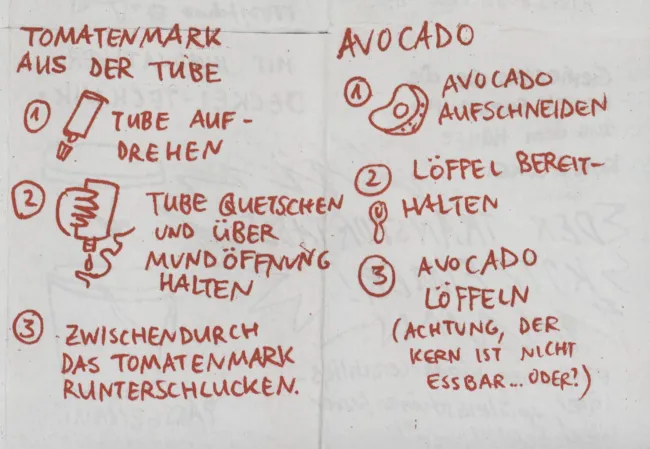 TOMATENMARK
AUS DER TUBE
1 TUBE AUF-
DREHEN
2 TUBE QUETSCHEN
UND ÜBER
MUNDÖFFNUNG
HALTEN
3 ZWISCHENDURCH
DAS TOMATENMARK
RUNTERSCHLUCKEN.
AVOCADO
1 AVOCADO
AUFSCHNEIDEN
2 LÖFFEL BEREIT-
HALTEN
3 AVOCADO
LÖFFELN
(ACHTUNG, DER
KERN IST NICHT
ESSBAR... ODER?)